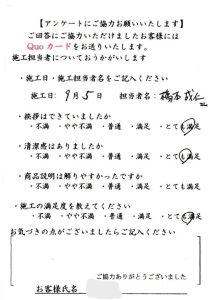 【アンケートにご協力お願いいたします】
ご回答にご協力いただけましたお客様には
Quoカードをお送りいたします。
施工担当者についておうかがいします
・施工日・施工担当者名をご記入ください
施工日: 9月5日 担当者名:
・挨拶はできていましたか
・不満 ・やや不満 ・普通 ・満足 ・とても満足
・清潔感はありましたか
・不満 ・やや不満 ・普通 ・満足 ・とても満足
・商品説明は解りやすかったですか
・不満 ・やや不満 ・普通 ・満足 ・とても満足
・施工の満足度を教えてください
・不満 ・やや不満 ・普通 ・満足 ・とても満足
お気づきの点がございましたらご記入ください
ご協力ありがとうございました
お客様氏名